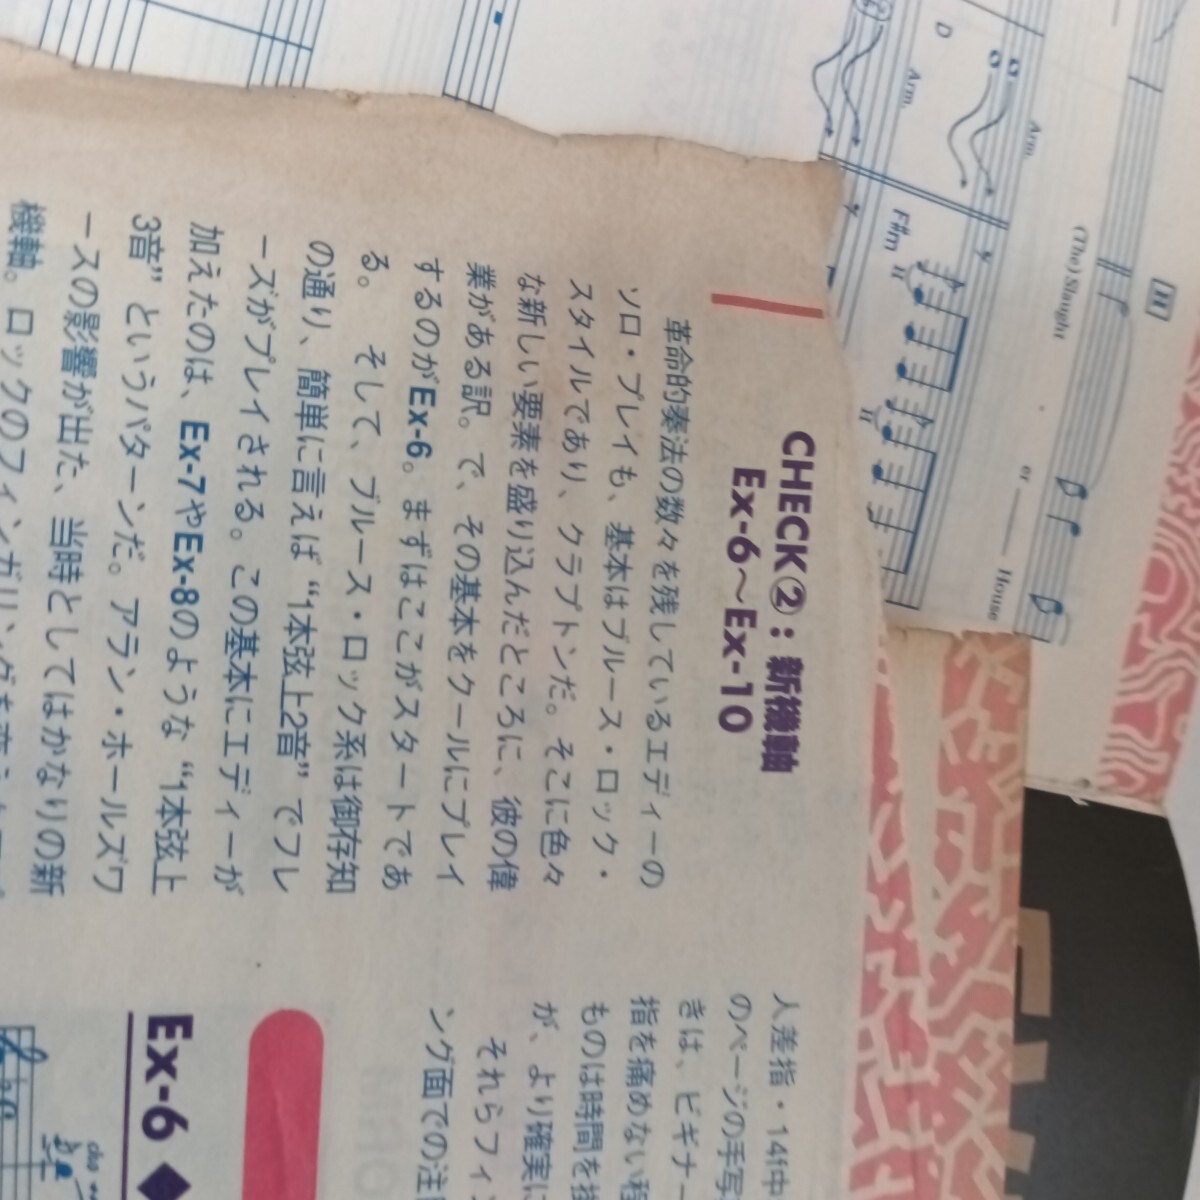 CHECK②：新機軸
Ex-6～Ex-10
革命的奏法の数々を残しているエディーの
ソロ・プレイも、基本はブルース・ロック・
スタイルであり、クラプトンだ。そこに色々
な新しい要素を盛り込んだところに、彼の偉
業がある訳。で、その基本をクールにプレイ
するのがEx-6。まずはここがスタートであ
る。　そして、ブルース・ロック系は御存知
の通り、簡単に言えば“1本弦上2音”でフレ
ーズがプレイされる。この基本にエディーが
加えたのは、Ex-7やEx-8のような“1本弦上
3音”というパターンだ。アラン・ホールズワ
ースの影響が出た、当時としてはかなりの新
機軸。ロックのフィンガリングを
人差指・14f中
のページの手写
きは、ビギナー
指を痛めない程
ものは時間を掛
が、より確実に
それらフィン
ング面での注
Ex-6 ◆
cho
D
Arm.
Arm.
F#m
H
H
(The) Slaught
er
House